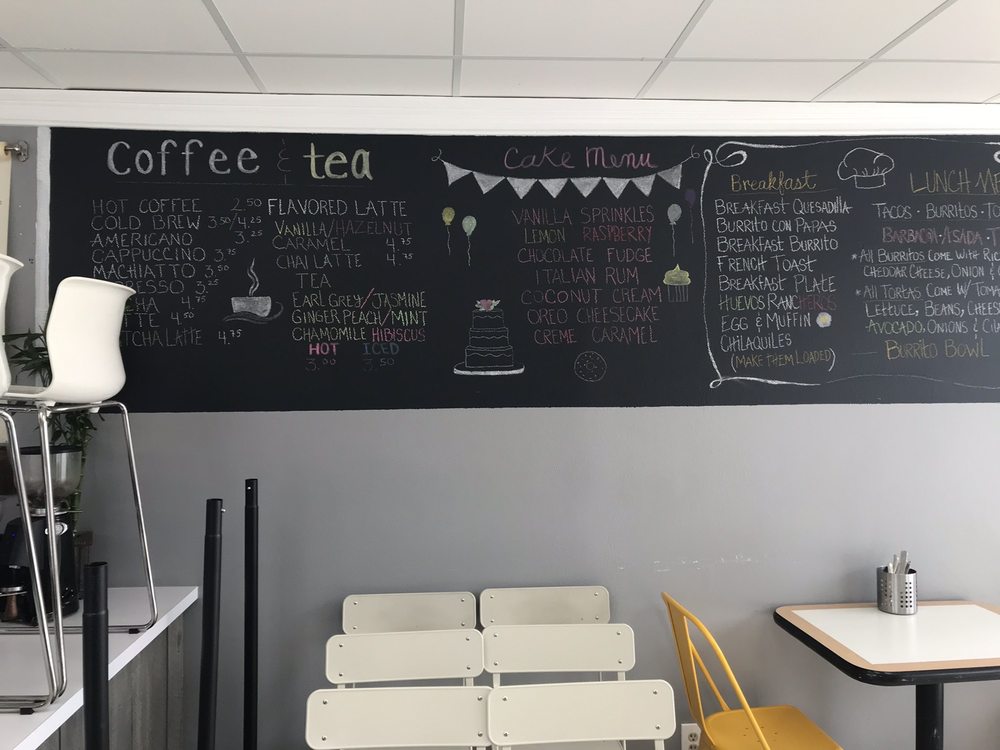 Coffee & tea
HOT COFFEE 2.50
COLD BREW 3.50/4.25
AMERICANO 3.25
CAPPUCCINO 3.75
MACHIATTO 3.50
3.25
4.75
4.50
LATTE 4.75
FLAVORED LATTE
VANILLA/HAZELNUT
CARAMEL 4.75
CHAI LATTE 4.75
TEA
EARL GREY/JASMINE
GINGER PEACH/MINT
CHAMOMILE HIBISCUS
HOT ICED
3.00 3.50
Cake Menu
VANILLA SPRINKLES
LEMON RASPBERRY
CHOCOLATE FUDGE
ITALIAN RUM
COCONUT CREAM
OREO CHEESECAKE
CREME CARAMEL
Breakfast
BREAKFAST QUESADILLA
BURRITO CON PAPAS
BREAKFAST BURRITO
FRENCH TOAST
BREAKFAST PLATE
HUEVOS RANCHEROS
EGG & MUFFIN
CHILAQUILES
(MAKE THEM LOADED)
LUNCH
TACOS · BURRITOS ·
BARBACOA · ASADA ·
*ALL BURRITOS COME WITH
CHEDDAR CHEESE, ONION &
*ALL TORTAS COME W/
LETTUCE, BEANS,
AVOCADO, ONIONS &
BURRITO BOWL